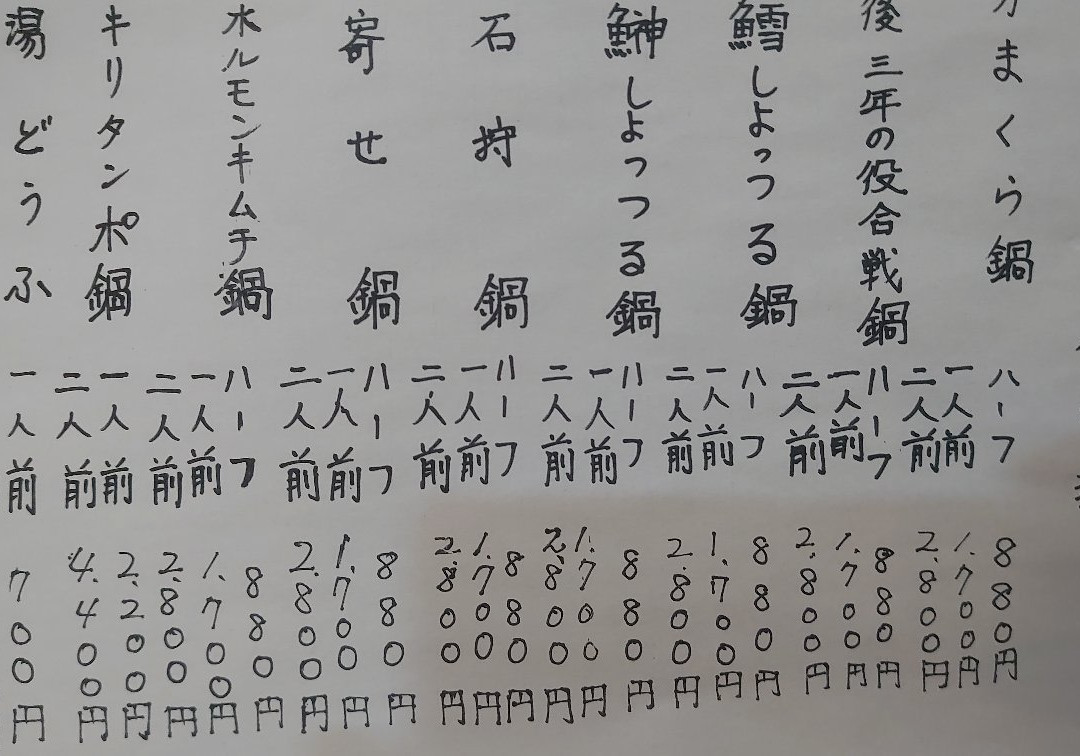 かまくら鍋
ハーフ 880円
一人前 1.700円
二人前 2.800円
後三年の役合戦鍋
ハーフ 880円
一人前 1.700円
二人前 2.800円
鱈しよっつる鍋
ハーフ 880円
一人前 1.700円
二人前 2.800円
鰰しよっつる鍋
ハーフ 880円
一人前 1.700円
二人前 2.800円
石狩鍋
ハーフ 880円
一人前 1.700円
二人前 2.800円
寄せ鍋
ハーフ 880円
一人前 1.700円
二人前 2.800円
ホルモンキムチ鍋
ハーフ 880円
一人前 1.700円
二人前 2.800円
キリタンポ鍋
一人前 2.200円
二人前 4.400円
湯どうふ
一人前 700円